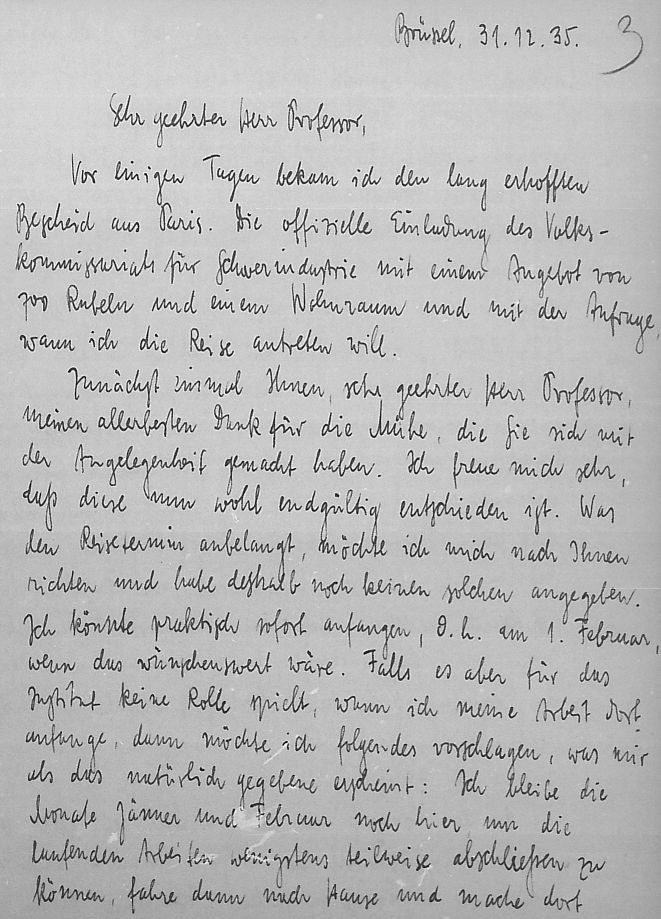 Brüssel, 31.12.35.
3
Sehr geehrter Herr Professor,
Vor einigen Tagen bekam ich den lang erhofften
Bescheid aus Paris. Die offizielle Einladung des Volks-
kommissariats für Schwerindustrie mit einem Angebot von
700 Rubeln und einem Wohnraum und mit der Anfrage,
wann ich die Reise antreten will.
Zunächst einmal Ihnen, sehr geehrter Herr Professor,
meinen allerbesten Dank für die Mühe, die Sie sich mit
der Angelegenheit gemacht haben. Ich freue mich sehr,
daß diese nun wohl endgültig entschieden ist. Was
den Reisetermin anbelangt, möchte ich mich nach Ihnen
richten und habe deshalb noch keinen solchen angegeben.
Ich könnte praktisch sofort anfangen, d.h. am 1. Februar,
wenn das wünschenswert wäre. Falls es aber für das
Institut keine Rolle spielt, wann ich meine Arbeit dort
anfange, dann möchte ich folgendes vorschlagen, was mir
als das natürlich gegebene erscheint: Ich bleibe die
Monate Jänner und Februar noch hier um die
laufenden Arbeiten wenigstens teilweise abschließen zu
können, fahre dann nach Hause und mache dort